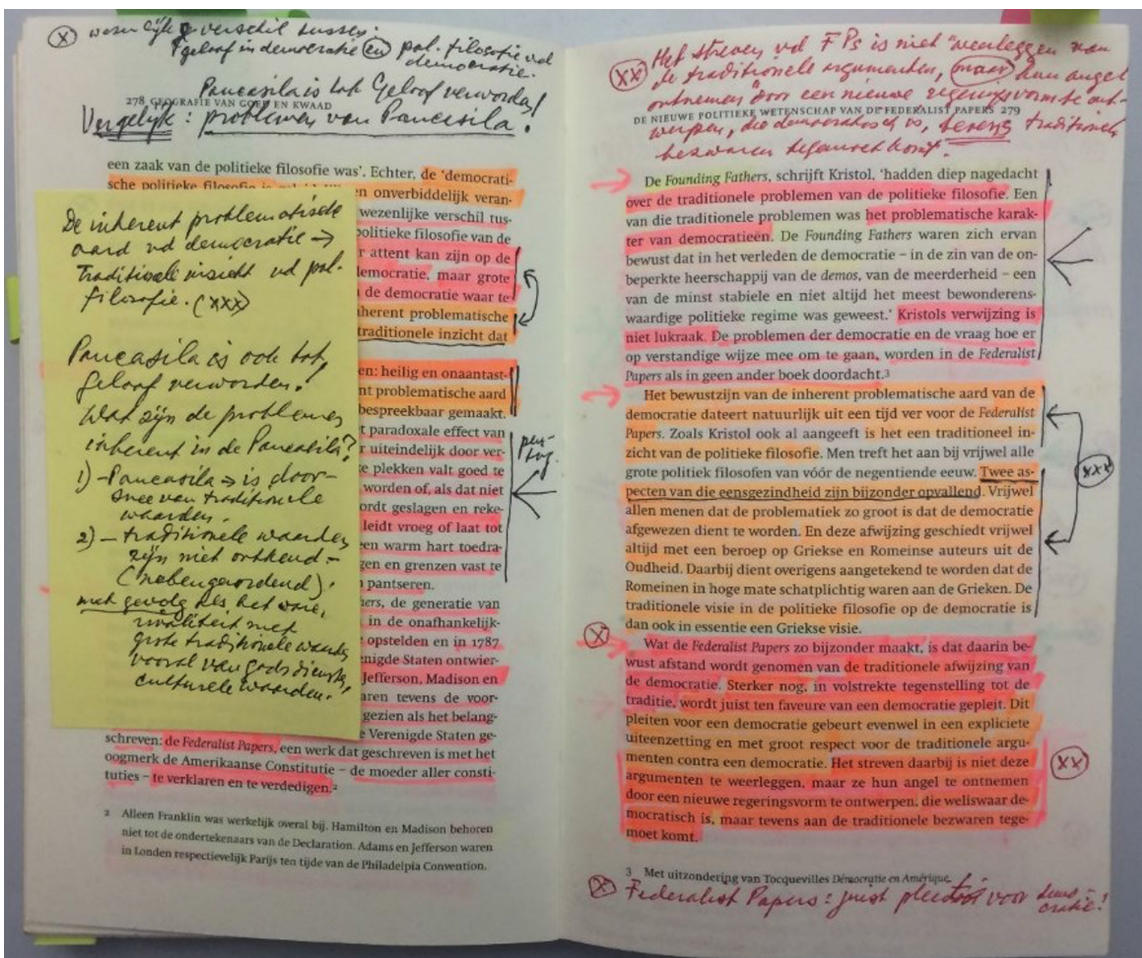 (X) wezenlijke verschil tussen:
geloof in democratie (en) pol. filosofie vd
democratie.
Pancasila is tot Geloof verworden!
278 GEOGRAFIE VAN GOED EN KWAAD
Vergelijk: problemen van Pancasila!
een zaak van de politieke filosofie was'. Echter, de 'democrati-
sche politieke filosofie is
en onverbiddelijk veran-
wezenlijke verschil tus-
politieke filosofie van de
r attent kan zijn op de
democratie, maar grote
de democratie waar te
nherent problematische
traditionele inzicht dat
en: heilig en onaantast-
nt problematische aard
bespreekbaar gemaakt.
t paradoxale effect van
r uiteindelijk door ver-
e plekken valt goed te
worden of, als dat niet
ordt geslagen en reke-
leidt vroeg of laat tot
een warm hart toedra-
gen en grenzen vast te
pantseren.
ers, de generatie van
in de onafhankelijk-
opstelden en in 1787
enigde Staten ontwier-
Jefferson, Madison en
aren tevens de voor-
gezien als het belang-
e Verenigde Staten ge-
schreven: de Federalist Papers, een werk dat geschreven is met het
oogmerk de Amerikaanse Constitutie – de moeder aller consti-
tuties – te verklaren en te verdedigen.²
De inherent problematische
aard vd democratie →
Traditionele inzicht vd pol.
filosofie. (xxx)
Pancasila is ook tot
geloof verworden!
Wat zijn de problemen
inherent in de Pancasila?
1) – Pancasila → is door-
snee van traditionele
waarden.
2) – traditionele waarden
zijn niet ontkend –
(nebengeordnend)!
met gevolg als het ware,
rivaliteit met
grote traditionele waarden
vooral van godsdienst,
culturele waarden!
2 Alleen Franklin was werkelijk overal bij. Hamilton en Madison behoren
niet tot de ondertekenaars van de Declaration. Adams en Jefferson waren
in Londen respectievelijk Parijs ten tijde van de Philadelpia Convention.
(XX) Het streven vd FPs is niet "weerleggen van
de traditionele argumenten, (maar) hun angel
ontnemen" door een nieuwe regeringsvorm te ont-
DE NIEUWE POLITIEKE WETENSCHAP VAN DE FEDERALIST PAPERS 279
werpen, die democratisch is, tevens traditionele
bezwaren tegemoet komt.
De Founding Fathers, schrijft Kristol, 'hadden diep nagedacht
over de traditionele problemen van de politieke filosofie. Een
van die traditionele problemen was het problematische karak-
ter van democratieën. De Founding Fathers waren zich ervan
bewust dat in het verleden de democratie – in de zin van de on-
beperkte heerschappij van de demos, van de meerderheid – een
van de minst stabiele en niet altijd het meest bewonderens-
waardige politieke regime was geweest.' Kristols verwijzing is
niet lukraak. De problemen der democratie en de vraag hoe er
op verstandige wijze mee om te gaan, worden in de Federalist
Papers als in geen ander boek doordacht.³
Het bewustzijn van de inherent problematische aard van de
democratie dateert natuurlijk uit een tijd ver voor de Federalist
Papers. Zoals Kristol ook al aangeeft is het een traditioneel in-
zicht van de politieke filosofie. Men treft het aan bij vrijwel alle
grote politiek filosofen van vóór de negentiende eeuw. Twee as-
pecten van die eensgezindheid zijn bijzonder opvallend. Vrijwel
allen menen dat de problematiek zo groot is dat de democratie
afgewezen dient te worden. En deze afwijzing geschiedt vrijwel
altijd met een beroep op Griekse en Romeinse auteurs uit de
Oudheid. Daarbij dient overigens aangetekend te worden dat de
Romeinen in hoge mate schatplichtig waren aan de Grieken. De
traditionele visie in de politieke filosofie op de democratie is
dan ook in essentie een Griekse visie.
(xxx)
(X)
Wat de Federalist Papers zo bijzonder maakt, is dat daarin be-
wust afstand wordt genomen van de traditionele afwijzing van
de democratie. Sterker nog, in volstrekte tegenstelling tot de
traditie, wordt juist ten faveure van een democratie gepleit. Dit
pleiten voor een democratie gebeurt evenwel in een expliciete
uiteenzetting en met groot respect voor de traditionele argu-
menten contra een democratie. Het streven daarbij is niet deze
argumenten te weerleggen, maar ze hun angel te ontnemen
door een nieuwe regeringsvorm te ontwerpen, die weliswaar de-
mocratisch is, maar tevens aan de traditionele bezwaren tege-
moet komt.
(XX)
3 Met uitzondering van Tocquevilles Démocratie en Amérique.
(X) Federalist Papers: juist pleidooi voor demo-
cratie!